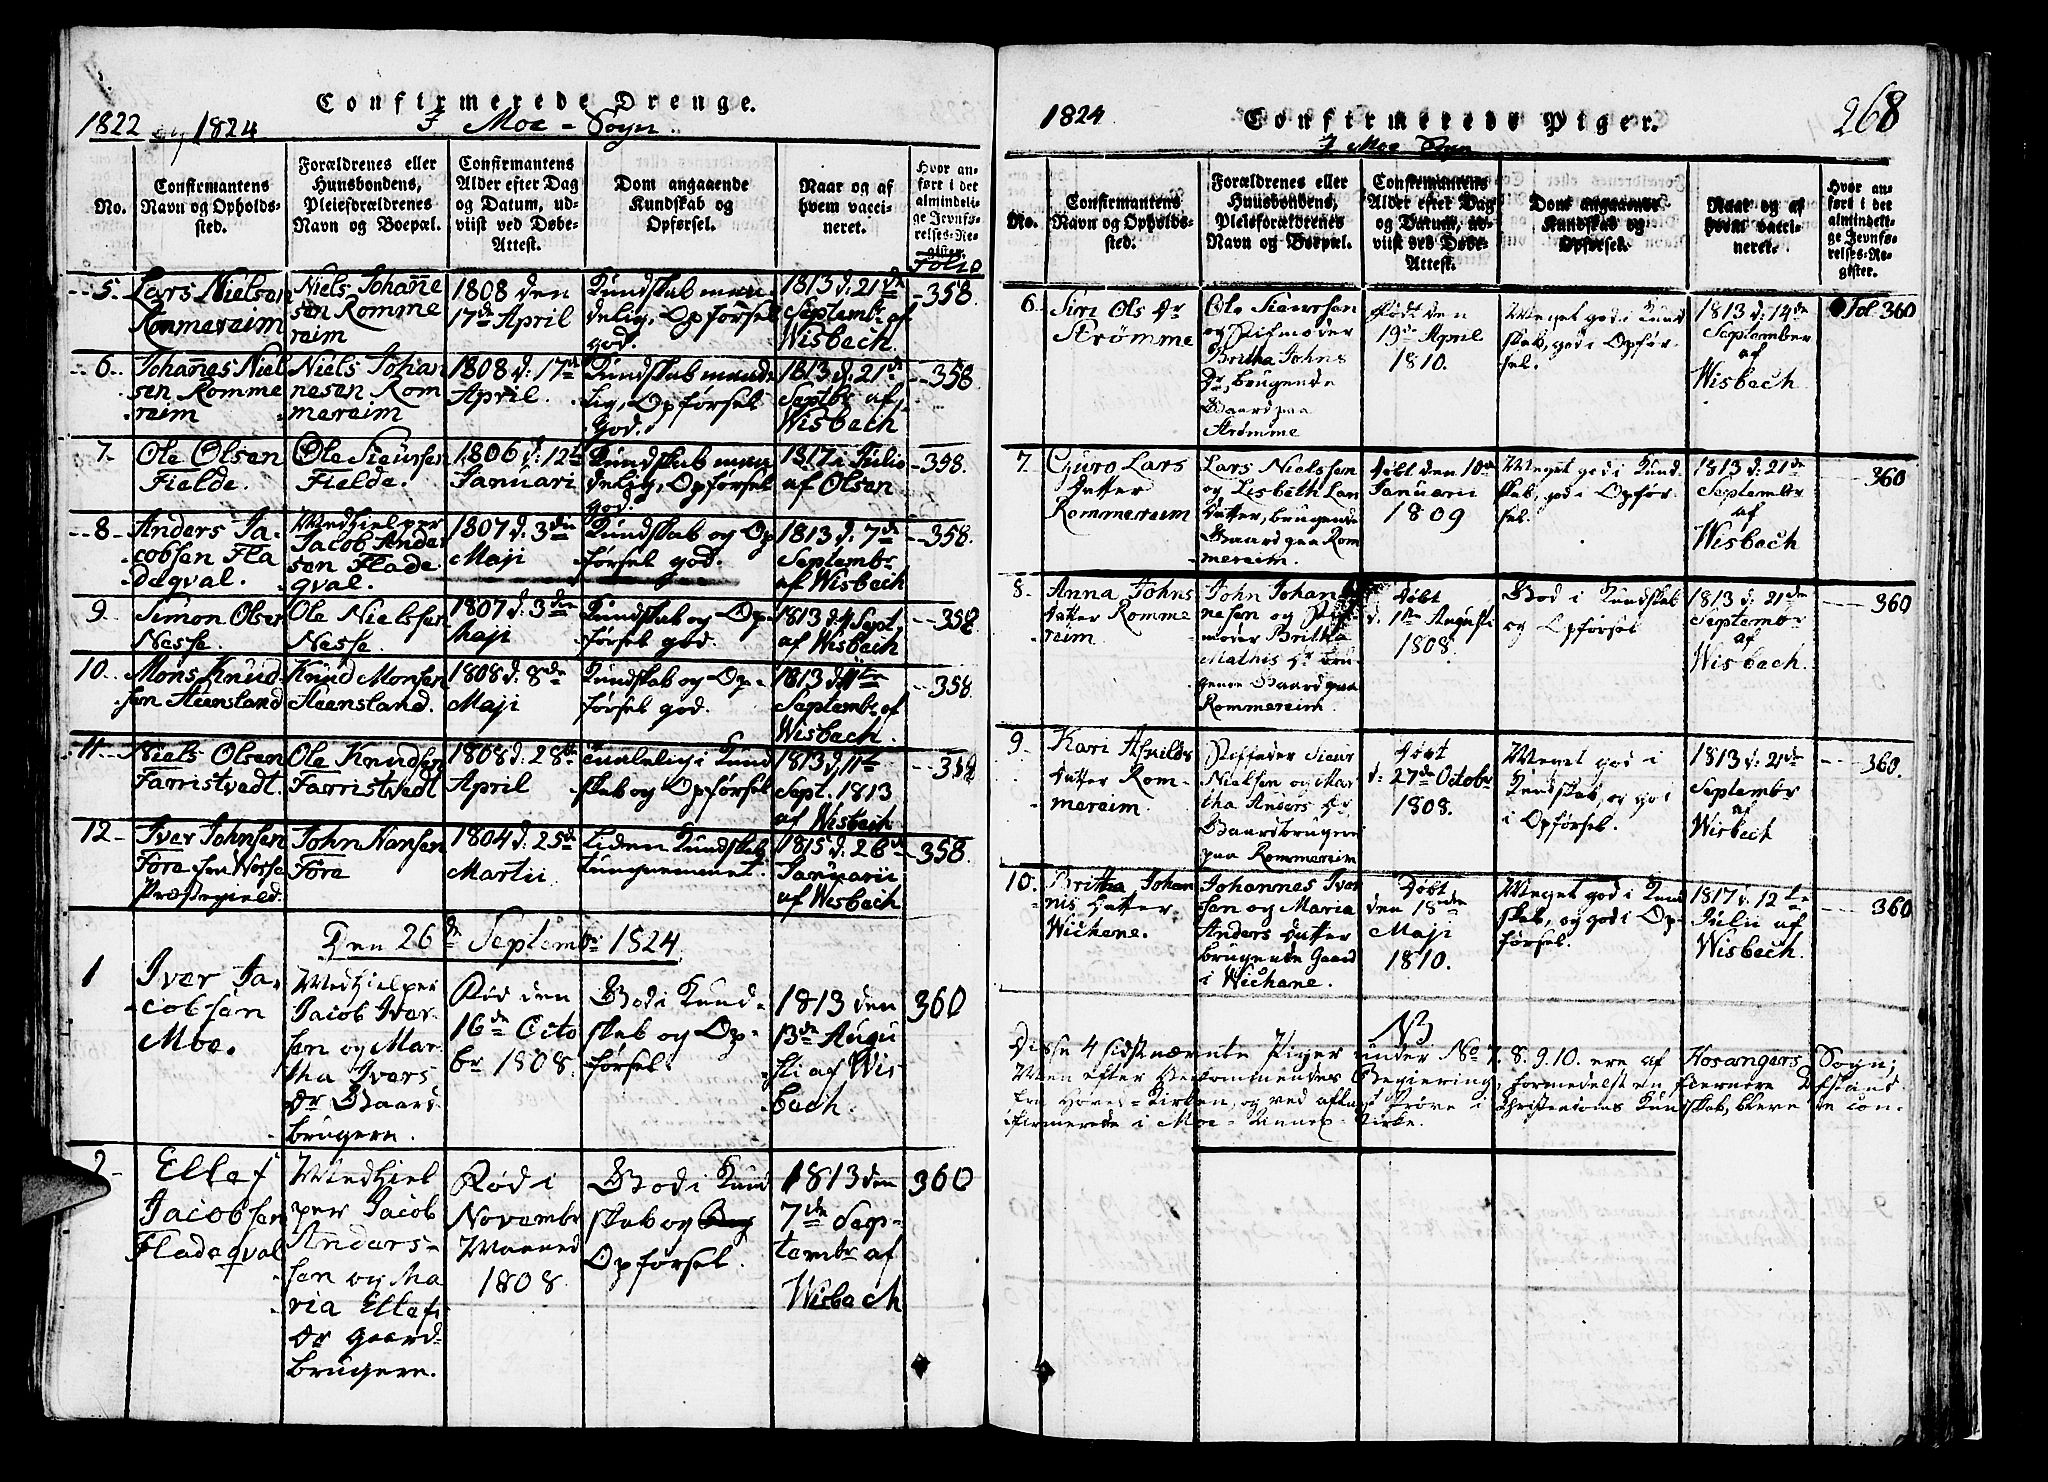 Confirmerede Drenge.
1822 og 1824
I Moe = Sogn.
No.
Confirmantens
Navn og Opholds-
sted.
Forældrenes eller
Huusbondens,
Pleieforældrenes
Navn og Boepæl.
Confirmantens
Alder efter Dag
og Datum, ud-
viist ved Døbe-
Attest.
Dom angaaende
Kundskab og
Opførsel.
Naar og af
hvem vacci-
neret.
Hvor an-
ført i det
almindeli-
ge Jevnfø-
relses-Re-
gister.
Folio
5
Lars Nielsen
Rommereim
Niels Johanne
sen Romme
reim
1808 den
17de April
Kundskab maa-
delig, Opførsel
god.
1813 d: 21de
Septembr af
Wisbech.
358
6
Johanes Niel
sen Romme
reim
Niels Johan
nesen Rom
mereim
1808 d: 17de
April.
Kundskab maade
lig, Opførsel
God.
1813 d: 21de
Septbr af
Wisbech
358
7
Ole Olsen
Fielde.
Ole Sieursen
Fielde.
1806 d: 12te
Januari
Kundskab maa
delig, Opførsel
god.
1817 i Julio
af Olsen
358.
8
Anders Ja-
cobsen Fla
degval.
Medhielper
Jacob Ander
sen Flade
gval.
1807 d: 3die
Maji
Kundskab og Op
førsel god.
1813 d: 7de
Septembr
af Wisbech
358.
9
Simon Olsen
Nesse.
Ole Nielssen
Nesse.
1807 d: 3die
Maji
Kundskab og Op-
førsel god.
1813 d. 4 Sept.
af Wisbech
358
10.
Mons Knud-
sen Steensland
Knud Monsen
Steensland.
1808 d: 8de
Maji
Kundskab og Op-
førsel god.
1813 d. 11te
Septembr af
Wisbech.
358
11
Niels Olsen
Farristvedt.
Ole Knudsen
Farristvedt
1808 d: 28de
April
Taalelig i Kund
skab og Opførsel
1813 d. 11te
Sept. 1813
af Wisbech
358
12
Iver Johnsen
Fôre
Præstegield.
John Hansen
Fôre
1804 d: 25de
Martii
Liden Kundskab
1815 d: 26de
Januarii
af Wisbech
358.
Den 26de Septembr 1824
1
Iver Ja-
cobsen
Moe.
Medhielper
Jacob Iver-
sen og Mar-
tha Ivers
Dr Gaard-
brugere.
Fød den
16de Octo
br 1808.
God i Kund-
skab og Op-
førsel.
1813 den
13de Augu
sti af Wis
bech.
360
2
Ellef
Jacobsen
Fladeqval
Medhiel
per Jacob
Anders-
sen og Ma
ria Ellefs
Dr gaard-
brugere.
Fød i
Novembr
Maaned
1808.
God i Kund
skab og
Opførsel.
1813 den
7de Sep-
tembr af
Wisbech
360
1824
Confirmerede Piger.
268
I Moe Sogn
No.
Confirmantens
Navn og Opholds-
sted.
Forældrenes eller
Huusbondens,
Pleieforældrenes
Navn og Boepæl.
Confirmantens
Alder efter Dag
og Datum, ud-
viist ved Døbe-
Attest.
Dom angaaende
Kundskab og
Opførsel.
Naar og af
hvem vacci-
neret.
Hvor an-
ført i det
almindeli-
ge Jevnfø-
relses-Re-
gister.
6
Siri Ols Dr
Strømme
Ole Sieurssen
og Stifmoder
Britha Johns
Dr, brugende
Gaard paa
Strømme
Født den
19de April
1810.
Meget god i Kund
skab, god i Opfør-
sel.
1813 d: 14de
September
af
Wisbech
Fol. 360
7
Guro Lars
Datter
Rommereim
Lars Nielssen
og Lisbeth Lars
Datter, brugende
Gaard paa Rom
mereim.
Døbt den 10de
Januarii
1809
Meget god i Kund-
skab, god i Opfør-
sel.
1813 d: 21de
Septembr
af
Wisbech
360
8.
Anna Johns
Datter Romme
reim
John Johan
nesen og Stif-
moder Britha
Mathis Dr bru-
gende Gaard paa
Rommereim.
Døbt
d: 1te Augusti
1808.
God i Kundskab
og Opførsel
1813 d: 21de
Septembr
af
Wisbech.
360
9
Kari Asvilds
Datter Rom-
mereim.
Steffader Sieur
Nielsen og Mar
tha Anders Dr,
Gaardbrugere
paa Rommereim
Døbt
d: 27de Octobr
1808.
Meget god i
Kundskab, og god
i Opførsel.
1813 d: 21de
Septembr
af
Wisbech
360.
10.
Britha Johan
nis Datter
Wichane.
Johannes Iver
sen og Maria
Anders Datter
brugende Gaard
i Wichane.
Døbt
den 18den
Maji
1810.
Meget god i Kund
skab, og god i Op-
førsel.
1817 d. 12te
Julii af
Wisbech.
360
NB
Disse 4 sidstnævnte Piger under No 7. 8. 9. 10. ere af Hosangers Sogn;
Men efter Vedkommendes Begiering, formedelst en fiernere Afstand
fra Hoved-Kirken, og ved aflagt Prøve i Christendoms Kundskab, bleve de con-
firmerede i Moe-Annex-Kirke.